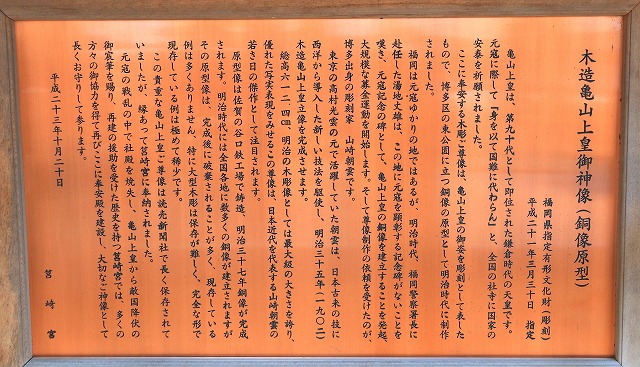 木造亀山上皇御神像(銅像原型)
福岡県指定有形文化財(彫刻)
平成二十一年三月三十日 指定
亀山上皇は、第九十代として即位された鎌倉時代の天皇です。
元寇に際して『身を以て国難に代わらん』と、全国の社寺に国家の
安泰を祈願されました。
ここに奉安する木彫ご尊像は、亀山上皇の御姿を彫刻として表した
もので、博多区の東公園に立つ銅像の原型として明治時代に制作
されました。
福岡は元寇ゆかりの地ではあるが、明治時代、福岡警察署長に
赴任した湯地丈雄は、この地に元寇を顕彰する記念碑がないことを
嘆き、元寇記念の碑として、亀山上皇の銅像を建立することを発起、
大規模な募金運動を開始します。そして尊像制作の依頼を受けたのが、
博多出身の彫刻家 山崎朝雲です。
東京の高村光雲の元で活躍していた朝雲は、日本古来の技に
西洋から導入した新しい技法を駆使し、明治三十五年(一九〇二)
木造亀山上皇立像を完成させます。
総高六一二、四㎝、明治の木彫像としては最大級の大きさを誇り、
優れた写実表現をみせるこの尊像は、日本近代を代表する山崎朝雲の
若き日の傑作として注目されます。
原型像は佐賀の谷口鉄工場で鋳造、明治三十七年銅像が完成
されます。明治時代には全国各地に数多くの銅像が建立されますが
その原型像は、完成後に破棄されることが多く、現存している
例は多くありません。特に大型木彫は保存が難しく、完全な形で
現存している例は極めて稀少です。
この貴重な亀山上皇ご尊像は読売新聞社で長く保存されて
いましたが、縁あって筥崎宮に奉納されました。
元寇の戦乱の中で社殿を焼失し、亀山上皇から敵国降伏の
御宸筆を賜り、再建の援助を受けた歴史を持つ筥崎宮では、多くの
方々の御協力を得て再びここに奉安殿を建設し、大切なご神像として
長くお守りして参ります。
平成二十三年十月二十日
筥崎宮